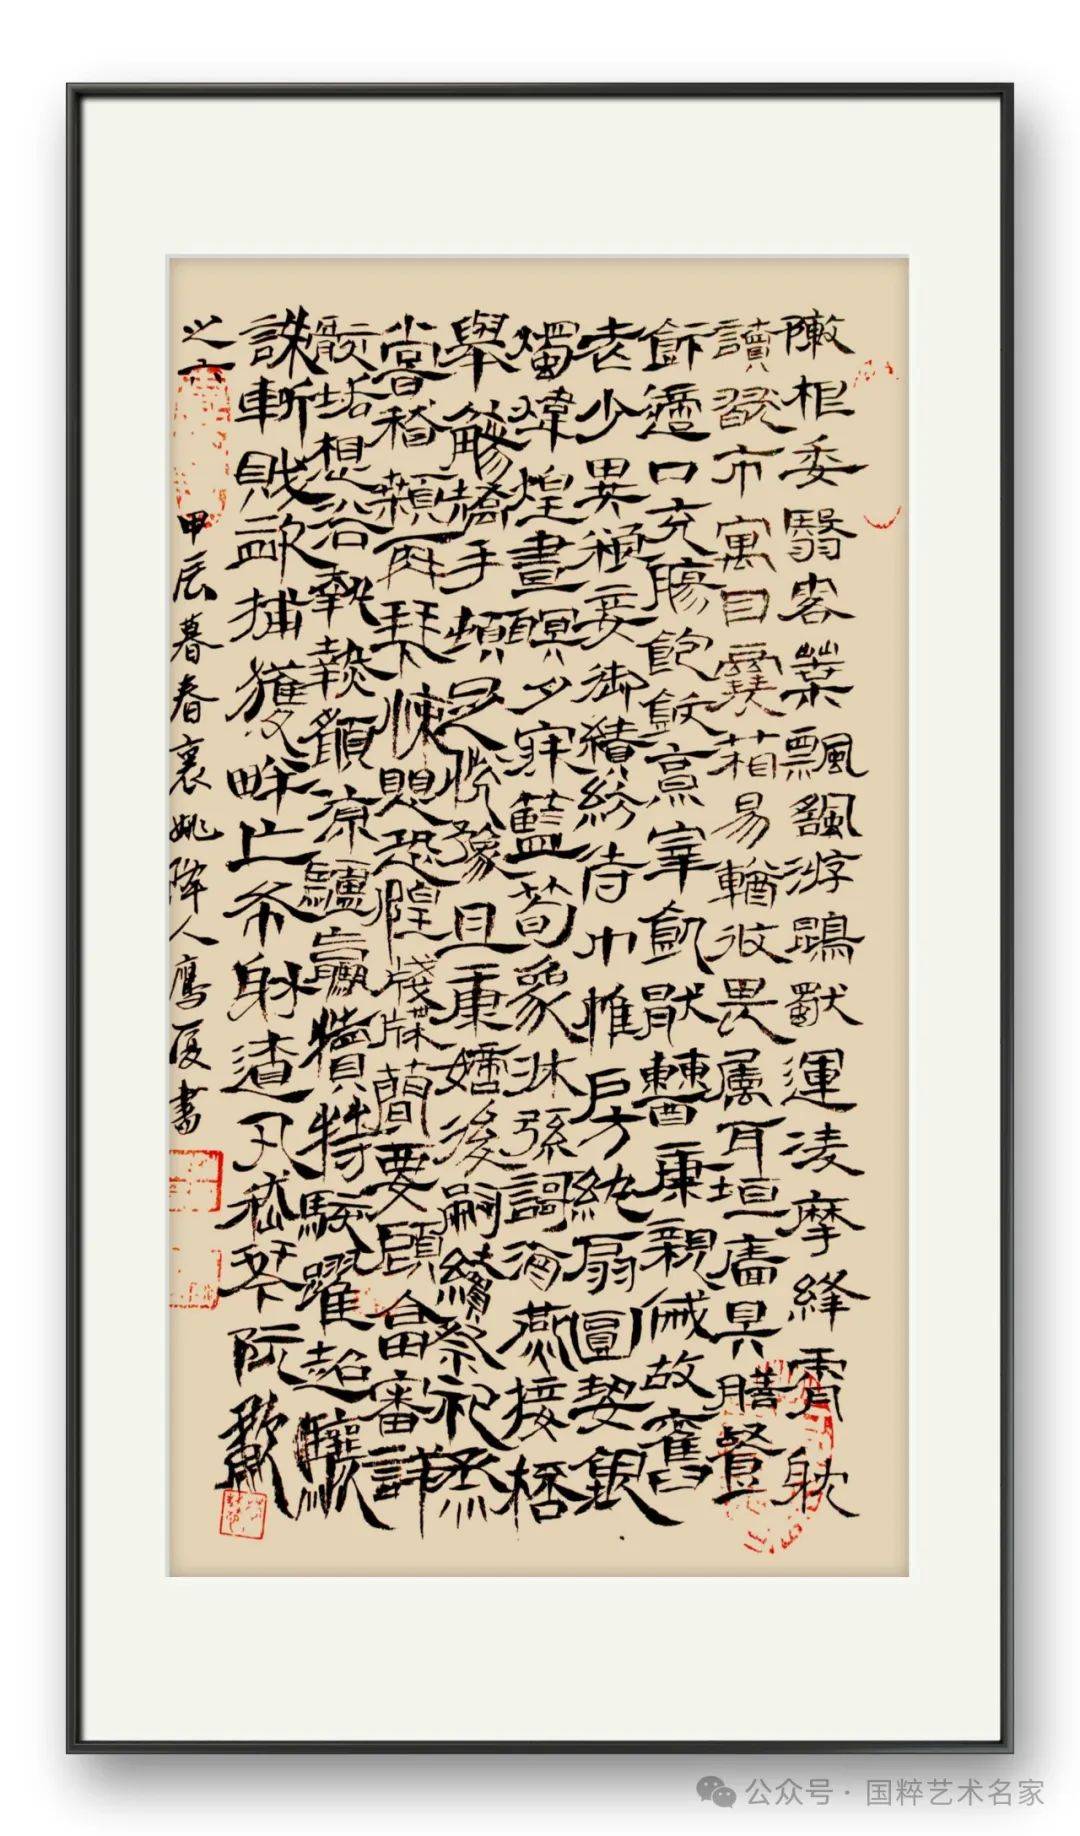 陳根委翳落葉飄颻游鵾獨運淩摩絳霄耽
讀翫市寓目囊箱易輶攸畏屬耳垣牆具膳餐
飯適口充腸飽飫烹宰飢猒糟糠親戚故舊
老少異糧妾御績紡侍巾帷房紈扇圓潔銀
燭煒煌晝瞑夕寐藍筍象牀弦歌酒燕接杯
舉觴矯手頓足悅豫且康嫡後嗣續祭祀烝
嘗稽顙再拜悚懼恐惶牋牒簡要顧答審詳
骸垢想浴執熱願涼驢騾犢特駭躍超驤
誅斬賊盜捕獲畔亡布射遼丸嵇琴阮嘯
之六
甲辰暮春襄姚人鹰厦書
公众号 · 国粹艺术名家